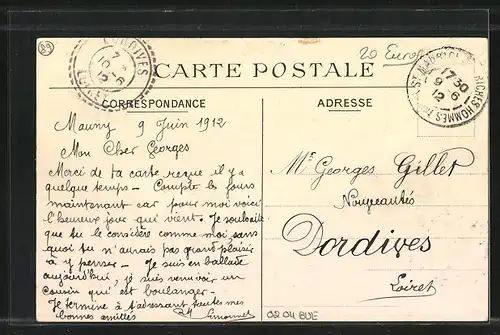 89
20 Euro
DORDIVES
10 - 6
12
LOIRET
CARTE POSTALE
17 30
9 - 6
12
CORRESPONDANCE
ADRESSE
9 Juin 1912
Mon Cher Georges
Merci de ta carte reçue il y a
quelque temps - Compte les jours
maintenant car pour moi voici
l'heureux jour qui vient. Je souhaite
que tu le considère comme moi sans
quoi tu n'aurais pas grand plaisir
à y penser - Je suis en ballade
aujourd'hui, je suis venu voir un
cousin qui est boulanger -
Je termine à t'adressant toutes mes
bonnes amitiés
Mr Georges Gillet
Nouveautés
Dordives
Loiret
02 04 BUE